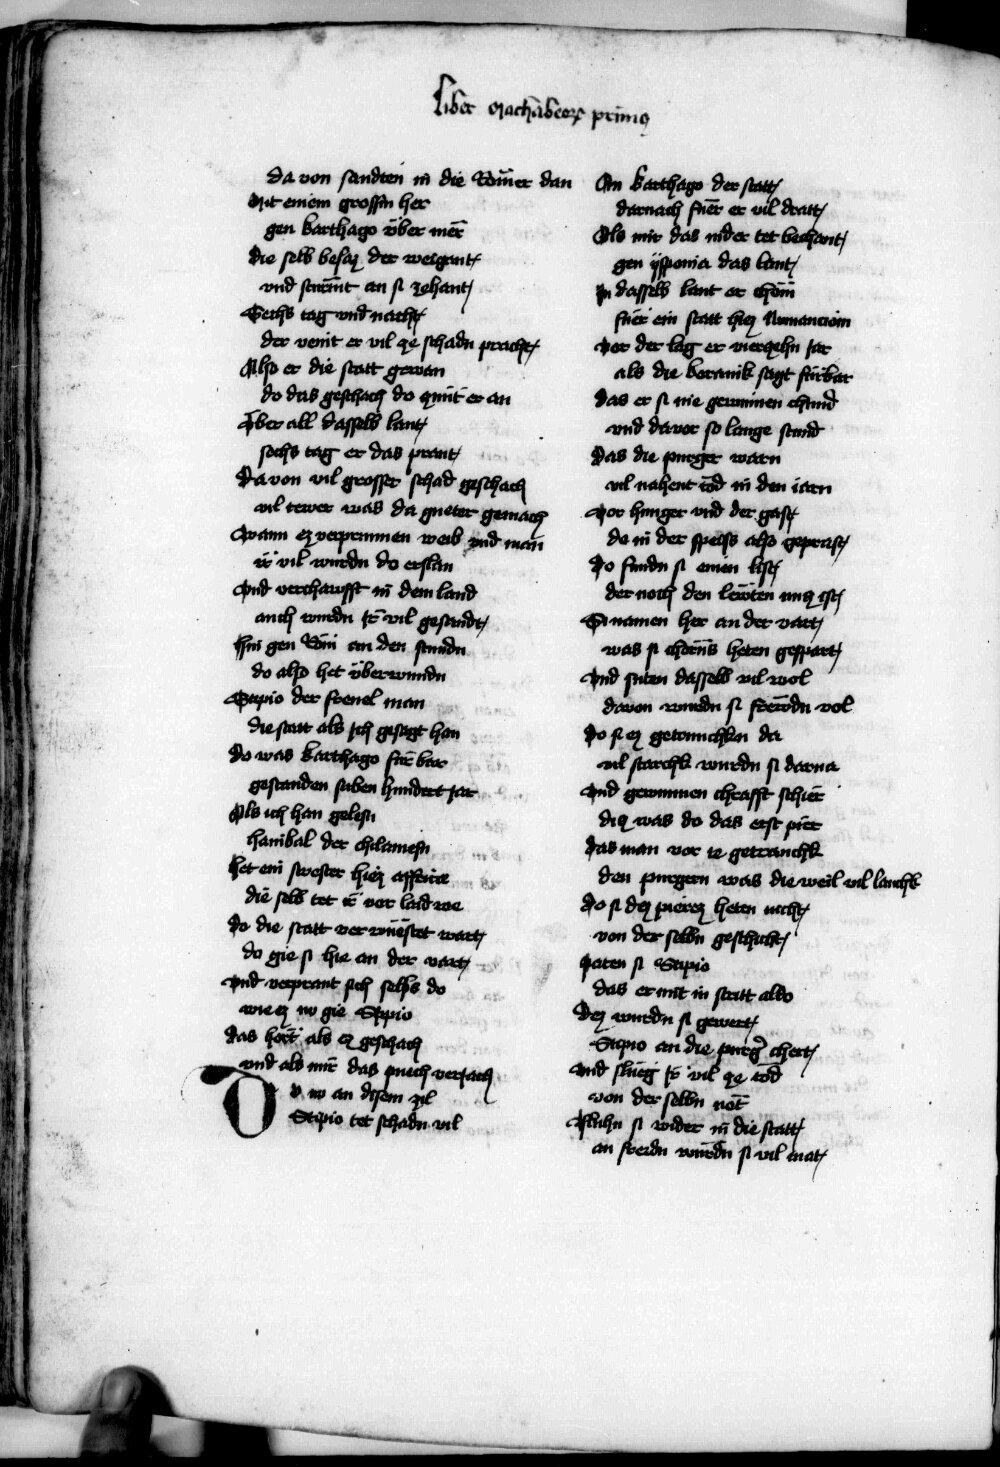 Liber Machabeorum primus
da von sandten in die Römer dan
Mit einem grossen her
gen karthago über mer
die selb besaz der weigant
vnd sturmt an si zehant
Sechs tag vnd nacht
der venit er vil ze schadn pracht
Also er die statt gewan
do das geschach do zunt er an
Über all dasselb lant
sechs tag er das prant
Da von vil grosser schad geschach
vil tewer was da gueter gemach
Wann ez verprunnen weib vnd man
ir vil wurdn do erslan
Vnd verchaufft in dem land
auch wurdn ir vil gesandt
Hin gen Rom an den stundn
do also het überwundn
Scipio der frenel man
die statt als ich gesagt han
do was karthago fürbar
gestanden siben hundert jar
Als ich han gelesn
hanibal der chilamesn
het ein swester hiez
die selb tet ir vor laid we
do die statt verwüestet wart
do gie si hie an der vart
Vnd verprant sich selbs do
wie ez nu gie Scipio
das hört als ez geschach
vnd als mir das puech verjach
DV nu an disem zil
Scipio tet schadn vil
An karthago der statt
darnach fuer er vil dratt
Als mir das nider tet bechant
gen ysponia das lant
In dasselb lant er chom
fuer ein statt hiez Numancion
vor der lag er vierzehn jar
als die koranik sagt fürbar
das er si nie gewinnen chund
vnd davor so lange stund
Das die purger warn
vil nahent tod in den iarn
Vor hunger vnd der gast
do in der speiss also geprast
do fundn si einen list
der noch den lewten nucz ist
Si namen her an der vart
was si chorns heten gespart
Vnd suten dasselb vil wol
davon wurdn si frewdn vol
do si ez getrunchken da
vil starckh wurdn si darna
Vnd gewunnen chrafft schier
diz was do das erst pier
das man vor ie getranckh
den purgern was die weil vil lanckh
do si dez pierez heten nicht
von der selbn geschicht
paten si Scipio
das er mit in stritt aldo
dez wurdn si gewert
Scipio an die purger chert
Vnd slueg ir vil ze tod
von der selbn not
Fluhn si wider in die statt
an freudn wurdn si vil mat